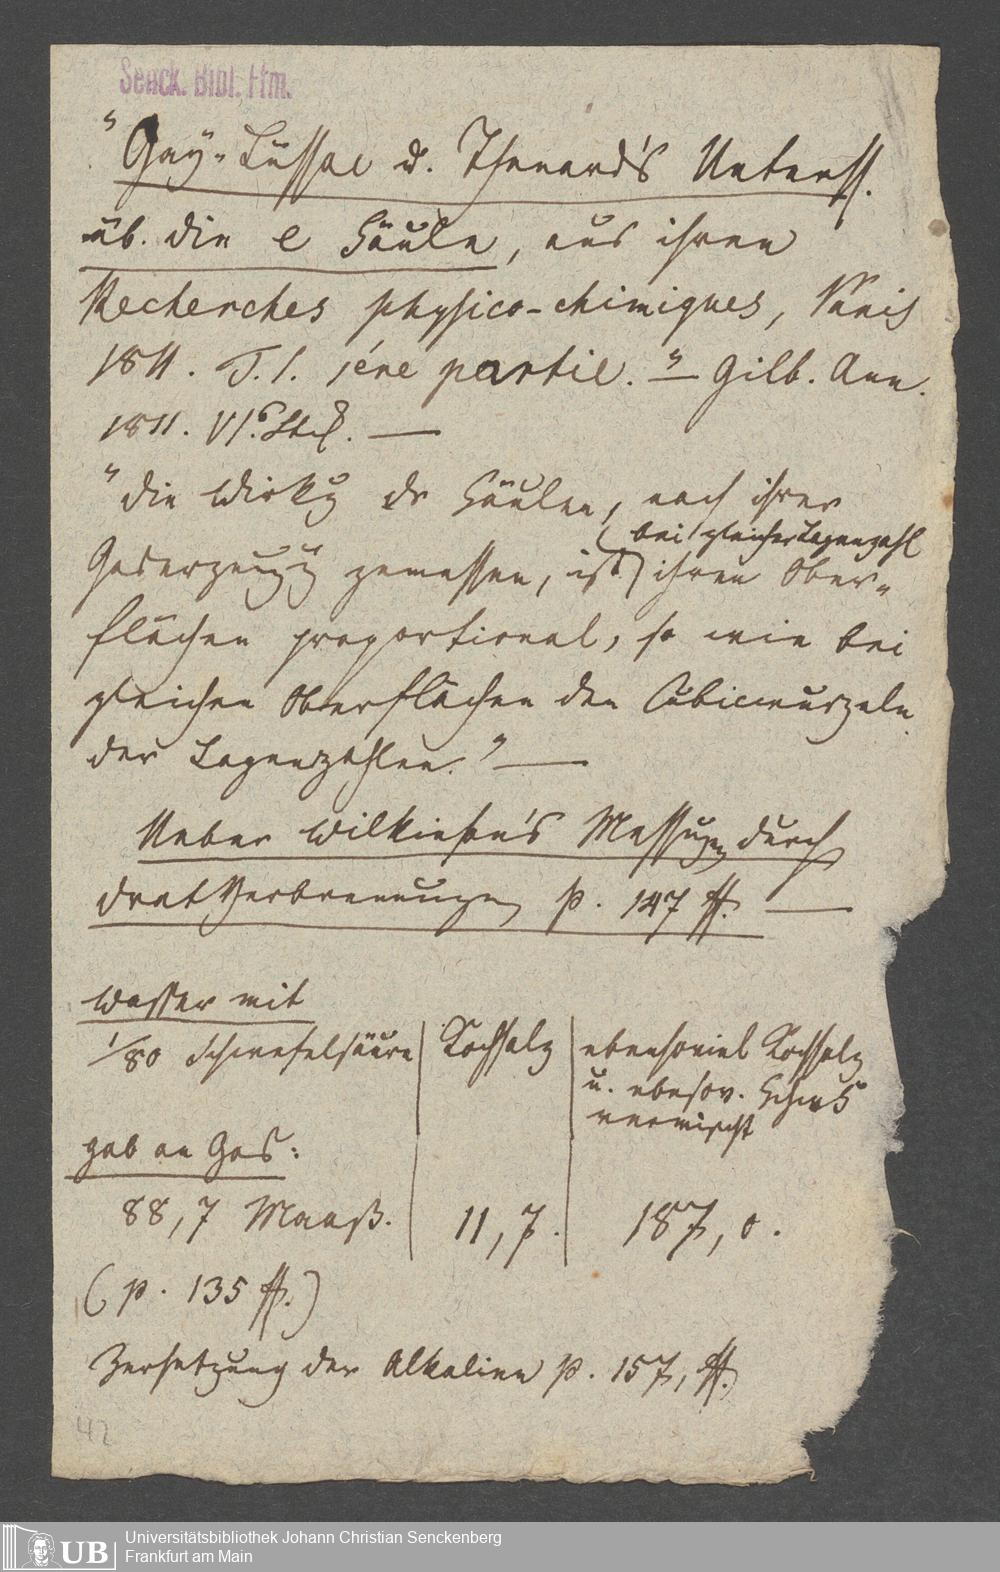 Senck. Bibl. Ffm.
"Gaÿ-Lüssac u. Thenard's Unterss.
üb. die e Säule, aus ihren
Recherches physico-chimiques, Paris
1811. T. I. 1ére partie." — Gilb. Ann.
1811. VI. Stck. —
"die Wirkg der Säulen, nach ihrer
bei gleicher Lagenzahl
Gaserzeugg gemessen, ist ihren Ober-
flächen proportional, so wie bei
gleichen Oberflächen den Cubicwurzeln
der Lagenzahlen." —
Ueber Wilkinson's Messugen durch
dratVerbrennungen p. 147 ff. —
Wasser mit
1/80 Schwefelsäure | Kochsalz | ebensoviel Kochsalz
u. ebensov. SchwS
vermischt
gab an Gas:
88,7 Maaß. | 11,7. | 187,0.
(p. 135 ff.)
Zersetzung der Alkalien p. 157, ff.
42
UB
Universitätsbibliothek Johann Christian Senckenberg
Frankfurt am Main